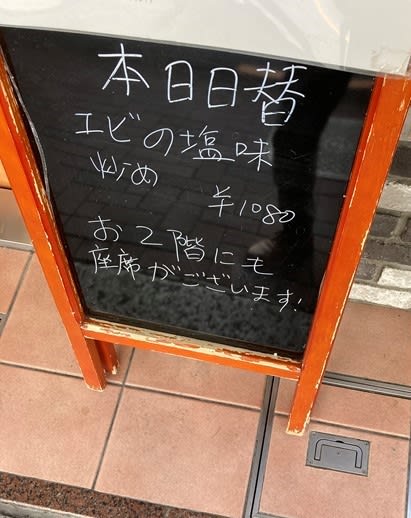 本日日替
エビの塩味
炒め
¥1080
お2階にも
座席がございます!